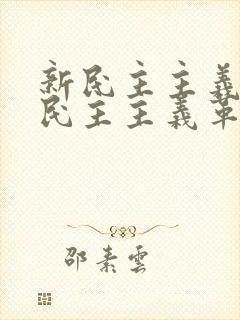 新民主主義
民主主義革
邵素雲